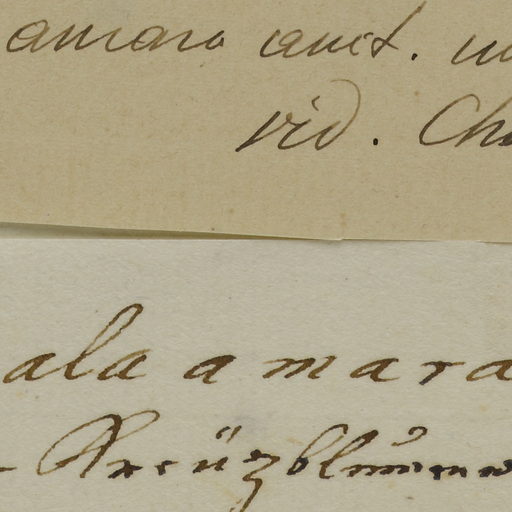 amara auct. 
vid. Ch
ala amara
- Kreüzblumen